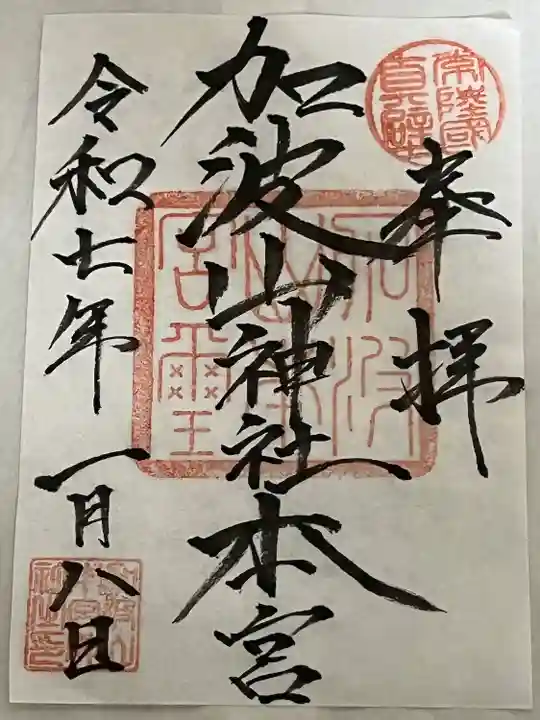 奉拝
加波山神社本宮
令和七年一月八日